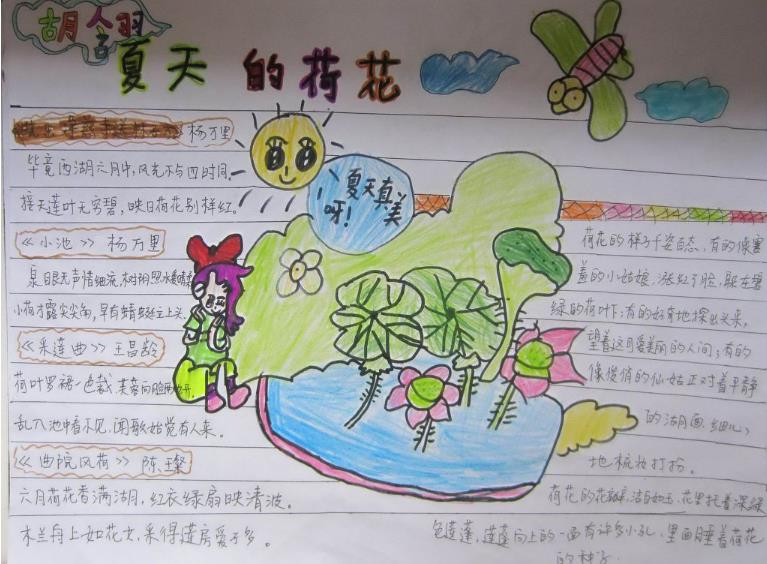 胡舍羽
夏天的荷花
杨万里
毕竟西湖六月中,风光不与四时同.
接天莲叶无穷碧,映日荷花别样红.
《小池》 杨万里
泉眼无声惜细流,树阴照水爱晴柔
小荷才露尖尖角,早有蜻蜓立上头.
《采莲曲》 王昌龄
荷叶罗裙一色裁 芙蓉向脸两边开.
乱入池中看不见,闻歌始觉有人来.
《曲院风荷》 陈璨
六月荷花香满湖,红衣绿扇映清波。
木兰舟上如花女,采得莲房爱子多。
夏天真美
呀!
荷花的样子千姿百态,有的像害
羞的小姑娘,涨红了脸,躲在碧
绿的荷叶下;有的好奇地探出头来,
望着这可爱美丽的人间;有的
像俊俏的仙姑正对着平静
的湖面,细心
地梳妆打扮.
荷花的花瓣,洁白如玉,花里托着深绿
色莲蓬,莲蓬向上的一面有许多小孔,里面睡着荷花
的种子.